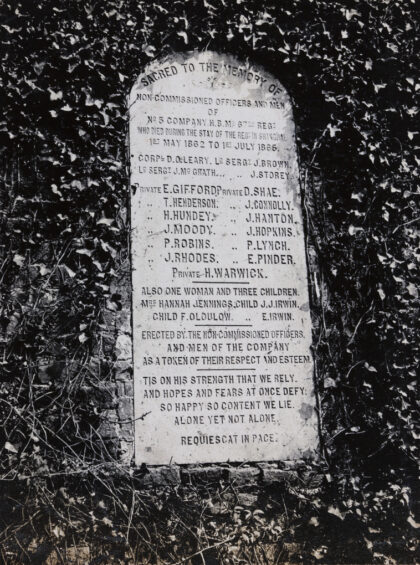 SACRED TO THE MEMORY OF
NON-COMMISSIONED OFFICERS AND MEN
OF
No 5 COMPANY H.B.Ms 67TH REGT
WHO DIED DURING THE STAY OF THE REGT IN SHANGHAI
1ST MAY 1862 TO 1ST JULY 1865.
CORPL D.O'LEARY. Lc SERGT J.BROWN.
Lc SERGT J.Mc GRATH... „ J.STOREY.
PRIVATE E.GIFFORD. PRIVATE D.SHAE.
„ T.HENDERSON. „ J.CONNOLLY.
„ H.HUNDEY. „ J.HANTON.
„ J.MOODY. „ J.HOPKINS.
„ P.ROBINS. „ P.LYNCH.
„ J.RHODES. „ E.PINDER.
PRIVATE H.WARWICK.
ALSO ONE WOMAN AND THREE CHILDREN.
MRS HANNAH JENNINGS. CHILD J.J.IRWIN.
CHILD F.OLDULOW. „ E.IRWIN.
ERECTED BY THE NON-COMMISSIONED OFFICERS.
AND MEN OF THE COMPANY
AS A TOKEN OF THEIR RESPECT AND ESTEEM.
TIS ON HIS STRENGTH THAT WE RELY.
AND HOPES AND FEARS AT ONCE DEFY:
SO HAPPY SO CONTENT WE LIE.
ALONE YET NOT ALONE.
REQUIESCAT IN PACE.